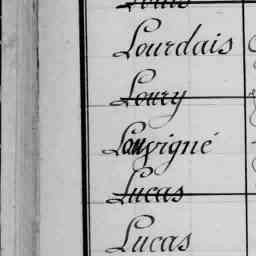 Lourdais
Loury
Louvigné
Lucas
Lucas